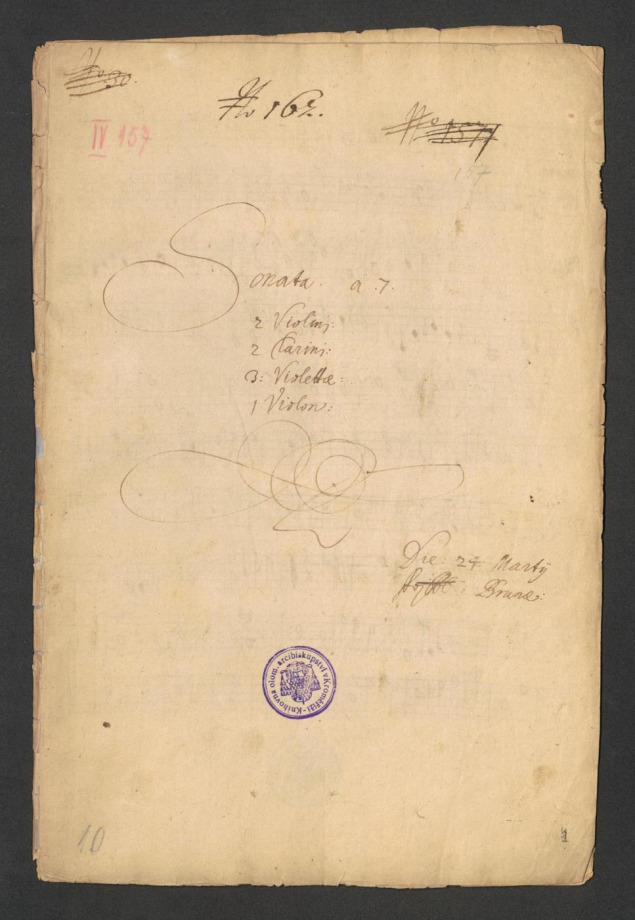 No 30.
No 162.
IV 157
157
Sonata. a 7.
2 Violini:
2 Clarini:
3: Violettæ:
1 Violon:
Die: 24 Martÿ
Brunæ:
Knihovna olom. arcibiskupství v Kroměříži
10
1